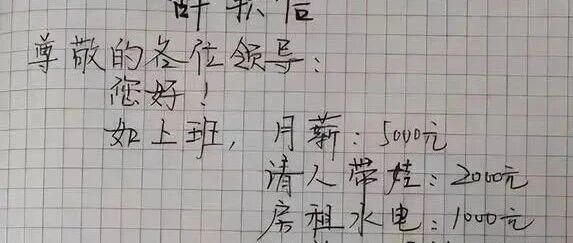 尊敬的各位领导:
您好!
如上班,月薪:5000元
请人带娃:2000元
房租水电:1000元